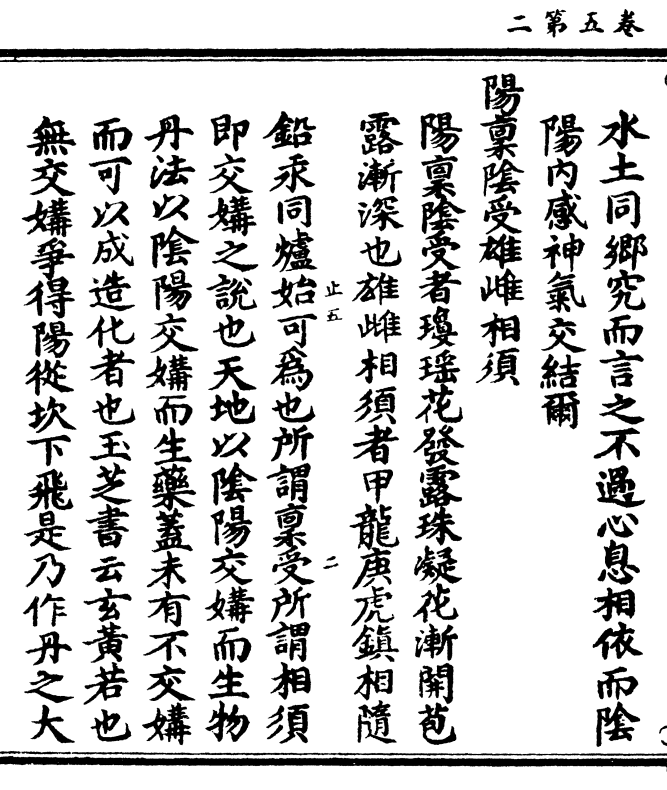 卷五第二
水土同鄉究而言之不過心息相依而陰
陽內感神氣交結爾
陽稟陰受雄雌相須
陽稟陰受者瓊瑶花發露珠凝花漸開苞
露漸深也雄雌相須者甲龍庚虎鎮相隨
止五
二
鉛汞同爐始可爲也所謂稟受所謂相須
即交媾之說也天地以陰陽交媾而生物
丹法以陰陽交媾而生藥蓋未有不交媾
而可以成造化者也玉芝書云玄黃若也
無交媾爭得陽從坎下飛是乃作丹之大